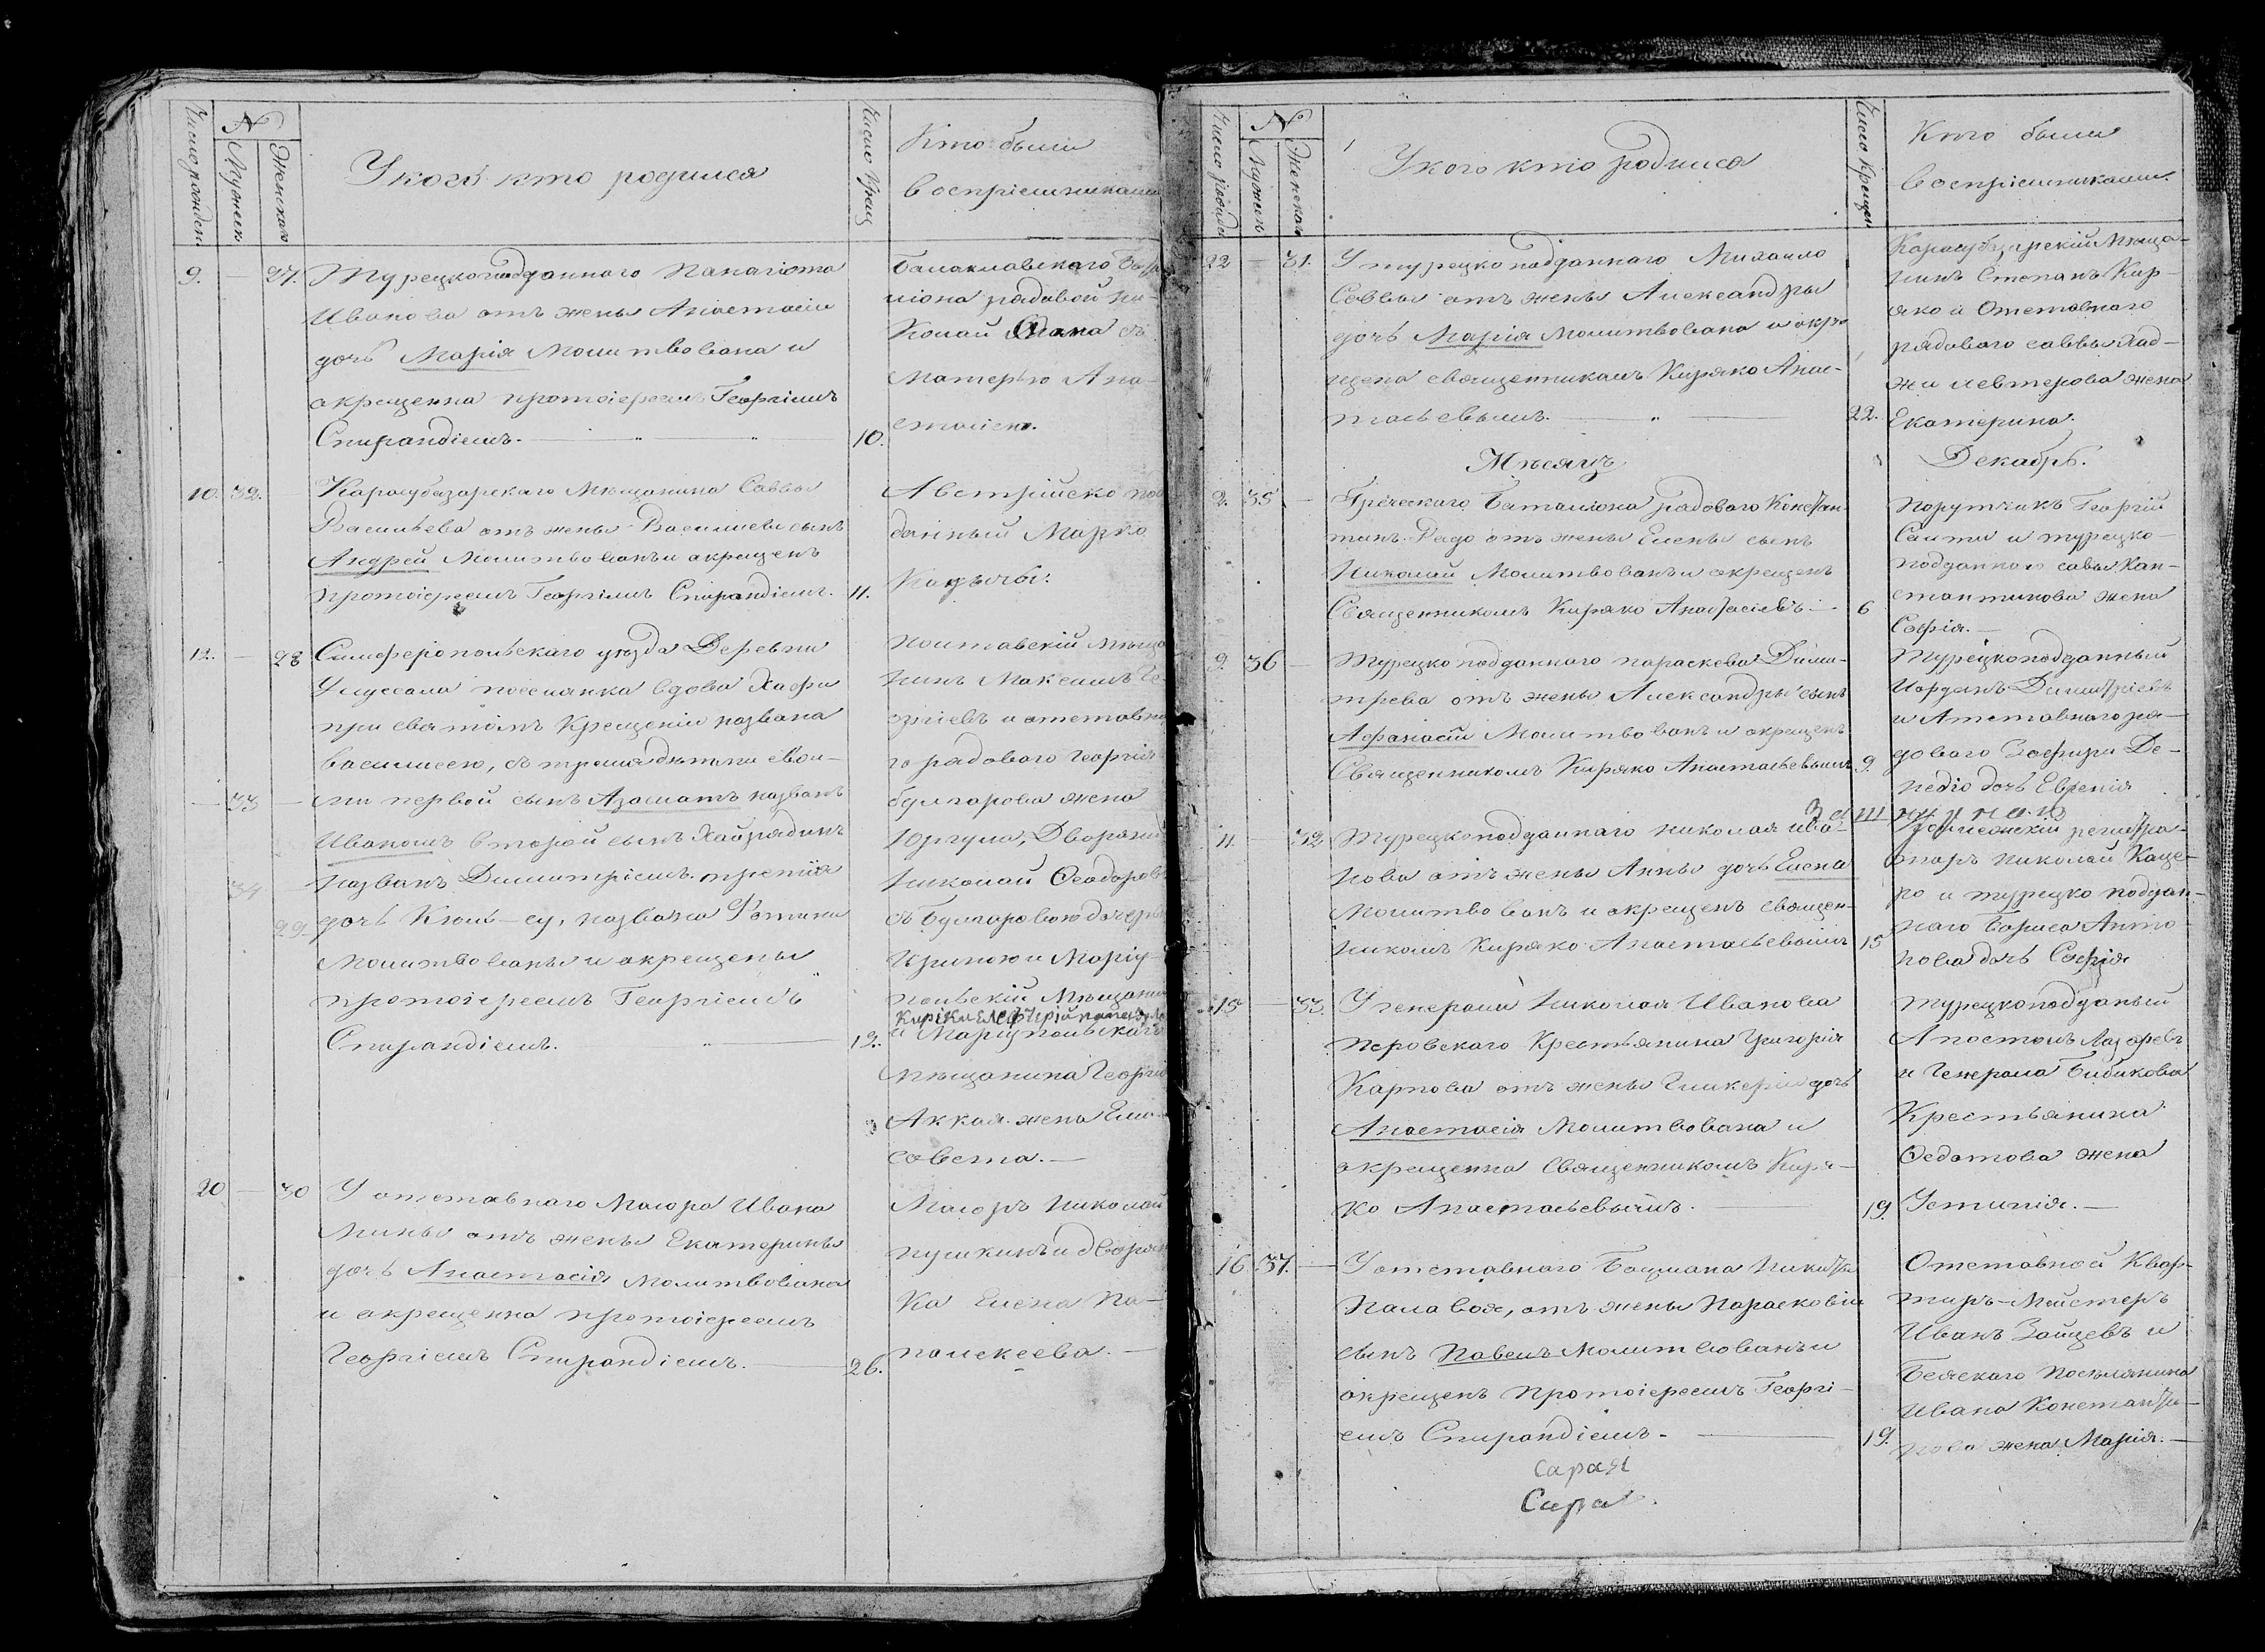 Число рожден.
N
Мужеск
Женскаго
У кого кто родился
Число Крещ
Кто были
воспріемниками
9. — 27. Турецкоподданного Панагіота
Иванова отъ жены Анастасіи
дочь Марія Молитвована и
окрещенна протоіереемъ Георгіемъ
Спирандіемъ. 10.
Балаклавскаго Бата
ліона рядовой Ни-
колай съ
Матерью Ана-
стасіею.
10. 32. — Карасубазарскаго Мѣщанина Саввы
Васильева отъ жены Василисы сынъ
Андрей Молитвованъ и окрещенъ
протоіереемъ Георгіемъ Спирандіемъ. 11.
Австрійско под
данный Марко
12. — 28 Симферопольскаго уѣзда Деревни
поселянка вдова
при святомъ Крещеніи названа
Василисею, съ тремя дѣтьми свои-
— 33 — ми первой сынъ Азаматъ названъ
Иваномъ второй сынъ
34 — названъ Димитріемъ. третія
29. дочь названа Фотина
Молитвованы и окрещены
протоіереемъ Георгіемъ
Спирандіемъ. 13.
Полтавскій мѣща
нинъ Максимъ Ге-
оргіевъ и отставна
го рядового Георгія
булгарова жена
Дворянин
Николай Ѳеодоров
съ Булгаровою дочерью
Ириною и Маріу-
польскій Мѣщанин
и Маріупольскаго
Мѣщанина Георгія
Аккая жена Ели-
савета. —
20 — 30 У отставнаго Маіора Ивана
Мины отъ жены Екатерины
дочь Анастасія молитвована
и окрещенна протоіереемъ
Георгіемъ Спирандіемъ. 26.
Маіоръ Николай
пушкинъ и дворян
ка Елена Па-
палексева. —
Число рожде
N
Мужеск
Женскаго
У кого кто родился
Число Крещен
Кто были
воспріемниками.
22 — 31. У турецко подданного Михаило
Саввы отъ жены Александры
дочь Марія Молитвована и окре
щена священникомъ Киряко Анас-
тасьевымъ. 22.
Карасубазарскій Мѣща-
нинъ Степанъ Кир-
яко и Отставного
рядового саввы Хад-
жи левтерова жена
Екатерина.
Мѣсяцъ Декабрь.
2. 35 — Греческаго Баталіона рядового Констан-
тинъ Радо отъ жены Елены сынъ
Николай Молитвованъ и окрещенъ
Священникомъ Киряко Анастасіевъ — 6
Порутчикъ Георгій
Сапти и турецко-
подданного савы Кон-
стантинова жена
Софія. —
9. 36 — Турецко подданного параскева Дими-
трева отъ жены Александры сынъ
Афанасій Молитвованъ и окрещенъ
Священникомъ Киряко Анастасьевымъ 9.
Турецкоподданный
Иорданъ Димитріевъ
и Атставного ря-
дового Зафири Де-
педіо дочь Евгенія
11. — 32 Турецкоподданнаго николая ива-
нова отъ жены Анны дочь Елена
Молитвованъ и окрещенъ священ-
никомъ Киряко Анастасьевымъ 15
регистра-
торъ николай Каце-
ро и турецко поддан-
наго Бориса Анто
нова дочь Софія
15 — 33. У генерала Николая Иванова
Перовскаго Крестьянина Григорія
Карпова отъ жены Гликеріи дочь
Анастасія Молитвована и
окрещенна Священникомъ Киря-
ко Анастасьевымъ. 19.
Турецкоподданый
Апостолъ Лазаревъ
и Генерала Бибикова
Крестьянина
Ѳедотова жена
Устинія. —
16 37. — У отставнаго Боцмана Никиты
Палавоя, отъ жены Парасковіи
сынъ Павелъ Молитвованъ и
окрещенъ Протоіереемъ Георгі-
емъ Спирандіемъ. 19.
Отставной Квар-
тиръ-Мейстеръ
Иванъ Зайцевъ и
поселянина
Ивана Константи-
нова жена Марія. —
Сарая
Сара